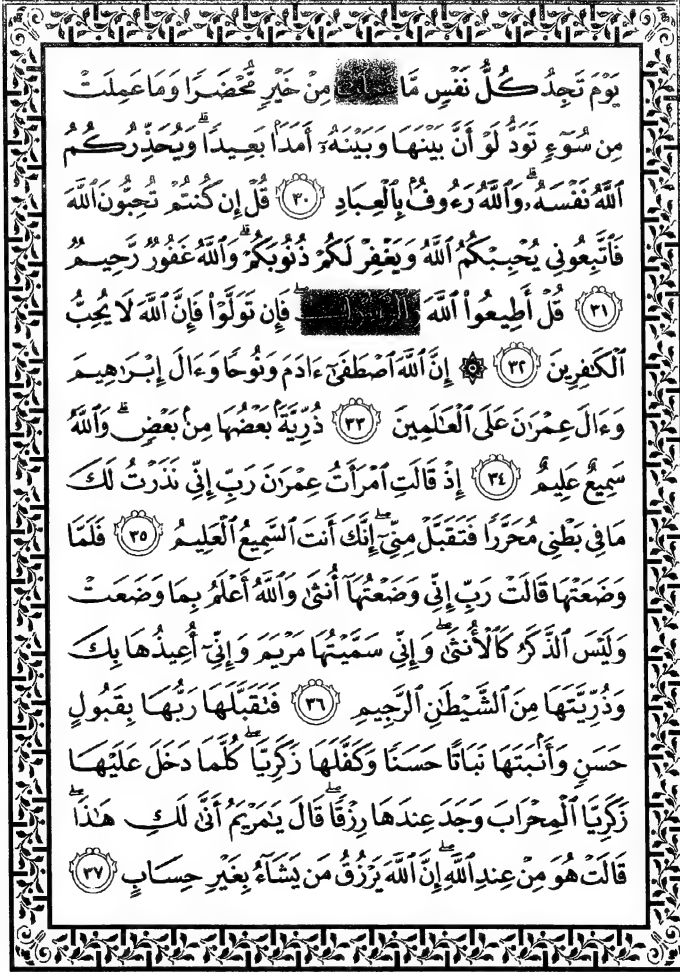 يَوْمَ تَجِدُ كُلُّ نَفْسٍ مَّا مِنْ خَيْرٍ مُّحْضَرًا وَمَا عَمِلَتْ
مِن سُوٓءٍ تَوَدُّ لَوْ أَنَّ بَيْنَهَا وَبَيْنَهُۥٓ أَمَدًۢا بَعِيدًا ۗ وَيُحَذِّرُكُمُ
ٱللَّهُ نَفْسَهُۥ ۗ وَٱللَّهُ رَءُوفٌۢ بِٱلْعِبَادِ ٣٠ قُلْ إِن كُنتُمْ تُحِبُّونَ ٱللَّهَ
فَٱتَّبِعُونِى يُحْبِبْكُمُ ٱللَّهُ وَيَغْفِرْ لَكُمْ ذُنُوبَكُمْ ۗ وَٱللَّهُ غَفُورٌ رَّحِيمٌ
٣١ قُلْ أَطِيعُوا۟ ٱللَّهَ ۖ فَإِن تَوَلَّوْا۟ فَإِنَّ ٱللَّهَ لَا يُحِبُّ
ٱلْكَٰفِرِينَ ٣٢ ۞ إِنَّ ٱللَّهَ ٱصْطَفَىٰٓ ءَادَمَ وَنُوحًا وَءَالَ إِبْرَٰهِيمَ
وَءَالَ عِمْرَٰنَ عَلَى ٱلْعَٰلَمِينَ ٣٣ ذُرِّيَّةًۢ بَعْضُهَا مِنۢ بَعْضٍ ۗ وَٱللَّهُ
سَمِيعٌ عَلِيمٌ ٣٤ إِذْ قَالَتِ ٱمْرَأَتُ عِمْرَٰنَ رَبِّ إِنِّى نَذَرْتُ لَكَ
مَا فِى بَطْنِى مُحَرَّرًا فَتَقَبَّلْ مِنِّىٓ ۖ إِنَّكَ أَنتَ ٱلسَّمِيعُ ٱلْعَلِيمُ ٣٥ فَلَمَّا
وَضَعَتْهَا قَالَتْ رَبِّ إِنِّى وَضَعْتُهَآ أُنثَىٰ وَٱللَّهُ أَعْلَمُ بِمَا وَضَعَتْ
وَلَيْسَ ٱلذَّكَرُ كَٱلْأُنثَىٰ ۖ وَإِنِّى سَمَّيْتُهَا مَرْيَمَ وَإِنِّىٓ أُعِيذُهَا بِكَ
وَذُرِّيَّتَهَا مِنَ ٱلشَّيْطَٰنِ ٱلرَّجِيمِ ٣٦ فَتَقَبَّلَهَا رَبُّهَا بِقَبُولٍ
حَسَنٍ وَأَنۢبَتَهَا نَبَاتًا حَسَنًا وَكَفَّلَهَا زَكَرِيَّا ۖ كُلَّمَا دَخَلَ عَلَيْهَا
زَكَرِيَّا ٱلْمِحْرَابَ وَجَدَ عِندَهَا رِزْقًا ۖ قَالَ يَٰمَرْيَمُ أَنَّىٰ لَكِ هَٰذَا ۖ
قَالَتْ هُوَ مِنْ عِندِ ٱللَّهِ ۖ إِنَّ ٱللَّهَ يَرْزُقُ مَن يَشَآءُ بِغَيْرِ حِسَابٍ ٣٧